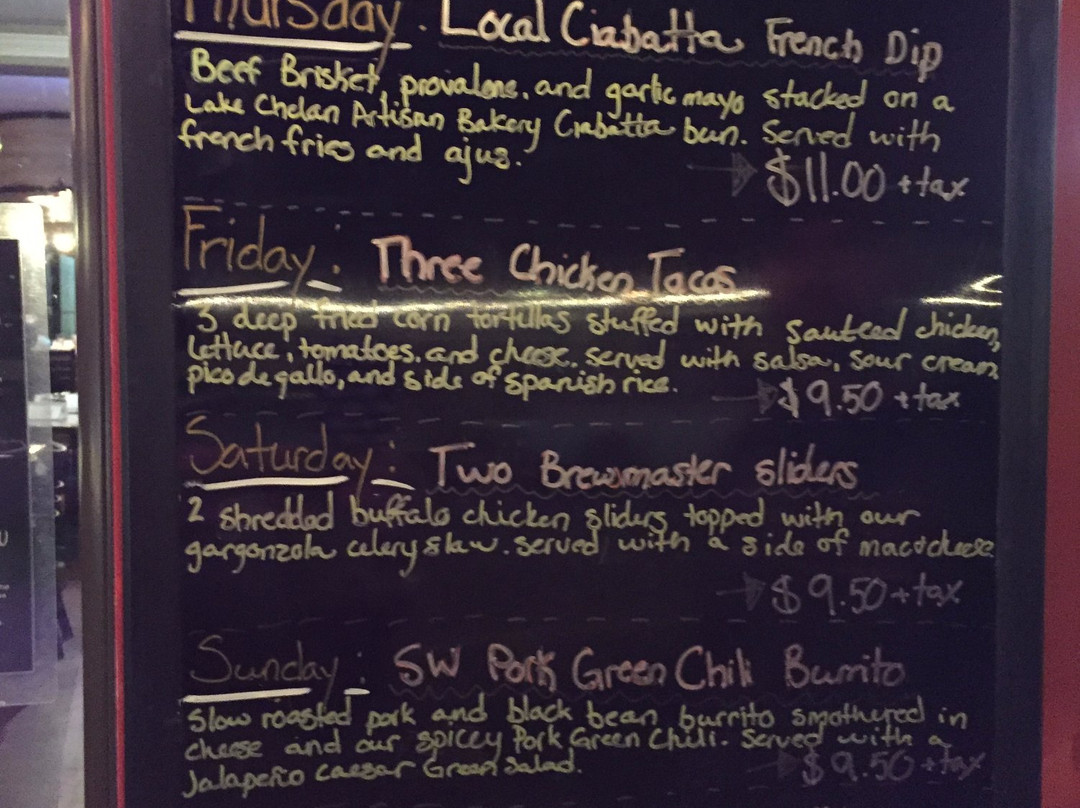 Thursday. Local Ciabatta French Dip
Beef Brisket, provalone, and garlic mayo stacked on a
Lake Chelan Artisan Bakery Ciabatta bun. Served with
french fries and ajus.
$11.00 + tax
Friday: Three Chicken Tacos
3 deep fried corn tortillas stuffed with sautead chicken,
lettuce, tomatoes, and cheese. served with salsa, sour cream,
pico de gallo, and side of spanish rice.
$9.50 + tax
Saturday: Two Brewmaster sliders
2 shredded buffalo chicken sliders topped with our
gargonzola celery slaw. served with a side of mac&cheese
$9.50 + tax
Sunday: SW Pork Green Chili Burrito
Slow roasted pork and black bean burrito smothered in
cheese and our spiccy Pork Green Chili. Served with a
Jalapeño caesar Green Salad.
$9.50 + tax